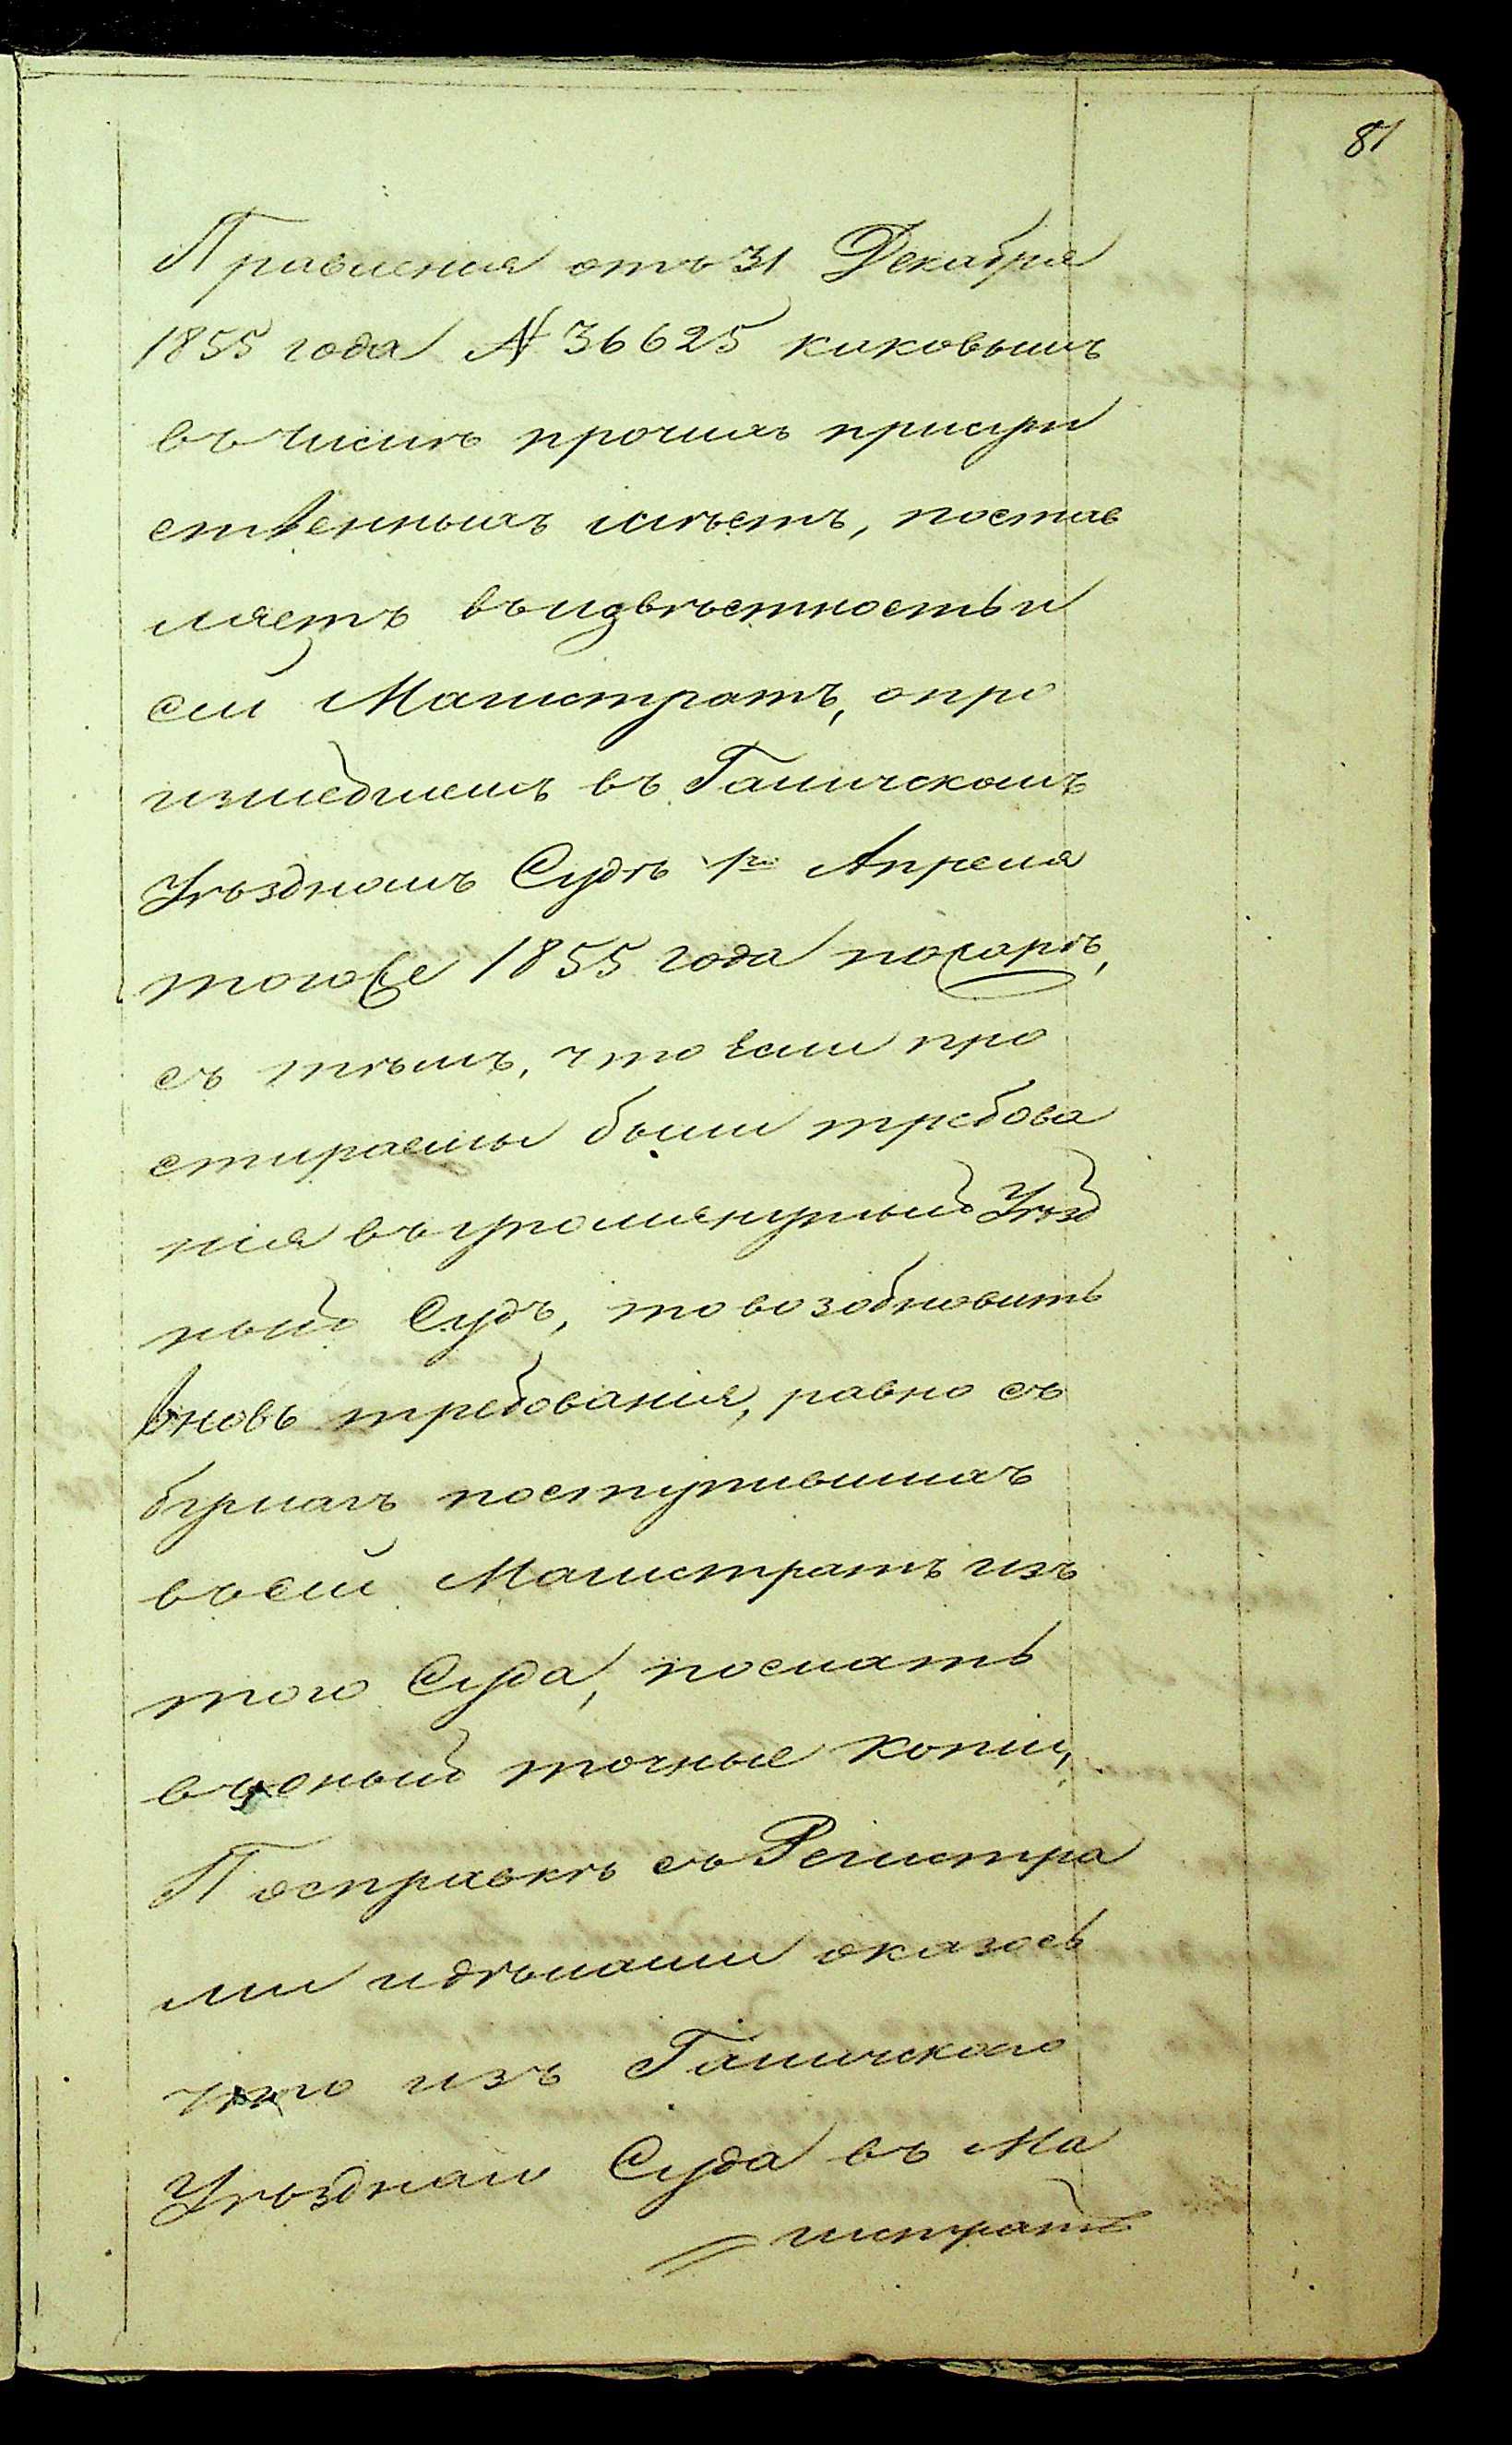 81
Правленія отъ 31 Декабря
1855 года № 36625 каковымъ
въ числѣ прочихъ присут
ственныхъ мѣстъ, постав
ляетъ въ извѣстность и
сей Магистратъ, о про
изшедшемъ въ Галичскомъ
Уѣздномъ Судѣ 1го Апреля
того же 1855 года пожарѣ,
съ тѣмъ, что если про
стираемы были требова
нія въ упомянутый Уѣзд
ный Судъ, то возобновить
вновь требованія, равно съ
бумагъ поступившихъ
въ сей Магистратъ изъ
того Суда, послать
въ оный точные копіи,
По справкѣ съ Регистра
ми и дѣлами оказось
что изъ Галичскаго
Уѣзднаго Суда въ Ма
гистратъ